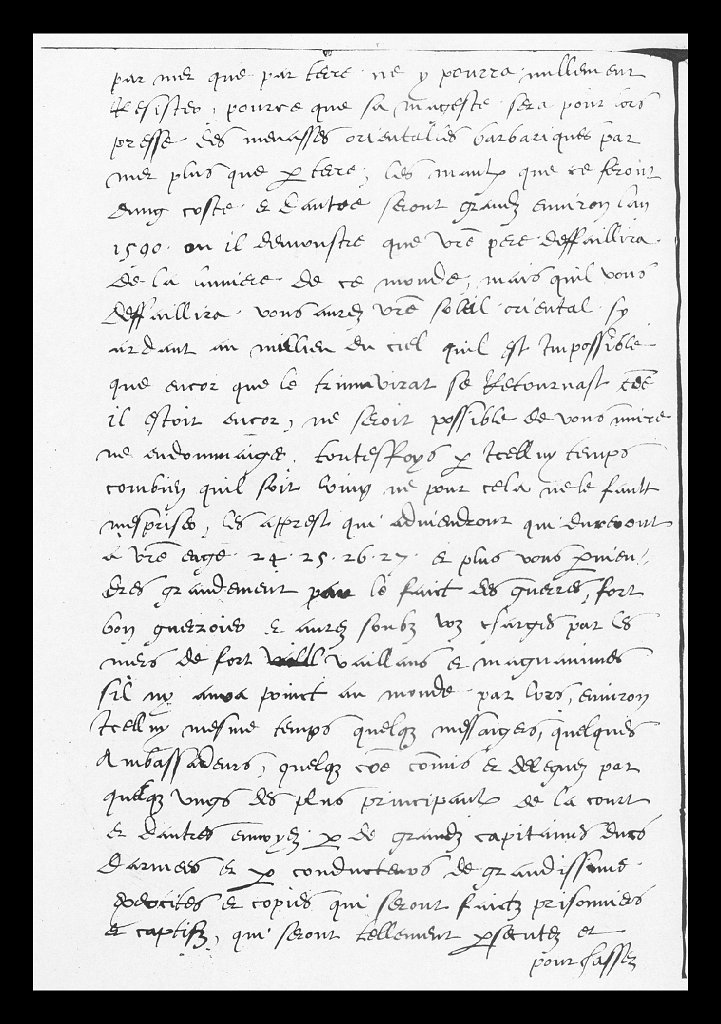 par mer que par terre ne y pourra nullement
Resister, pource que sa mageste sera pour lors
presse des menasses orientalles barbariques par
mer plus que p terre, les maulx que ce feront
dung coste et dautre seront grandz environ lan
1590. ou il demonstre que vre pere deffaillira
de la lumiere de ce monde, mais quil vous
deffaillira vous aurez vre soleil oriental sy
ardant au millieu du ciel quil est Impossible
que encor que le triumvirat se Retournast cõe
il estoit encor, ne seroit possible de vous nuire
ne endommaige, toutesfoys p Icelluy temps
combien quil soit loing ne pour cela ne le fault
mespriser, les apprest qui adviendront qui dureront
a vre eage 24. 25. 26. 27. et plus vous
grandement par le faict des guerres, fort
bon guerroier et aurez soubz voz charges par les
mers de fort vaillans et magnanimes
sil ny aura poinct au monde par lors, environ
Icelluy mesme temps quelqz messaigers, quelques
Ambassadeurs, quelqz cõe cõmis et deleguez par
quelqz ungs des plus principaulx de la court
et dautres envoyez p de grandz capitaines ducs
darmees et p conducteurs de grandissime
exercites et copies qui seront faictz prisonniers
et captifz, qui seront tellement psecutez et
pourchassez